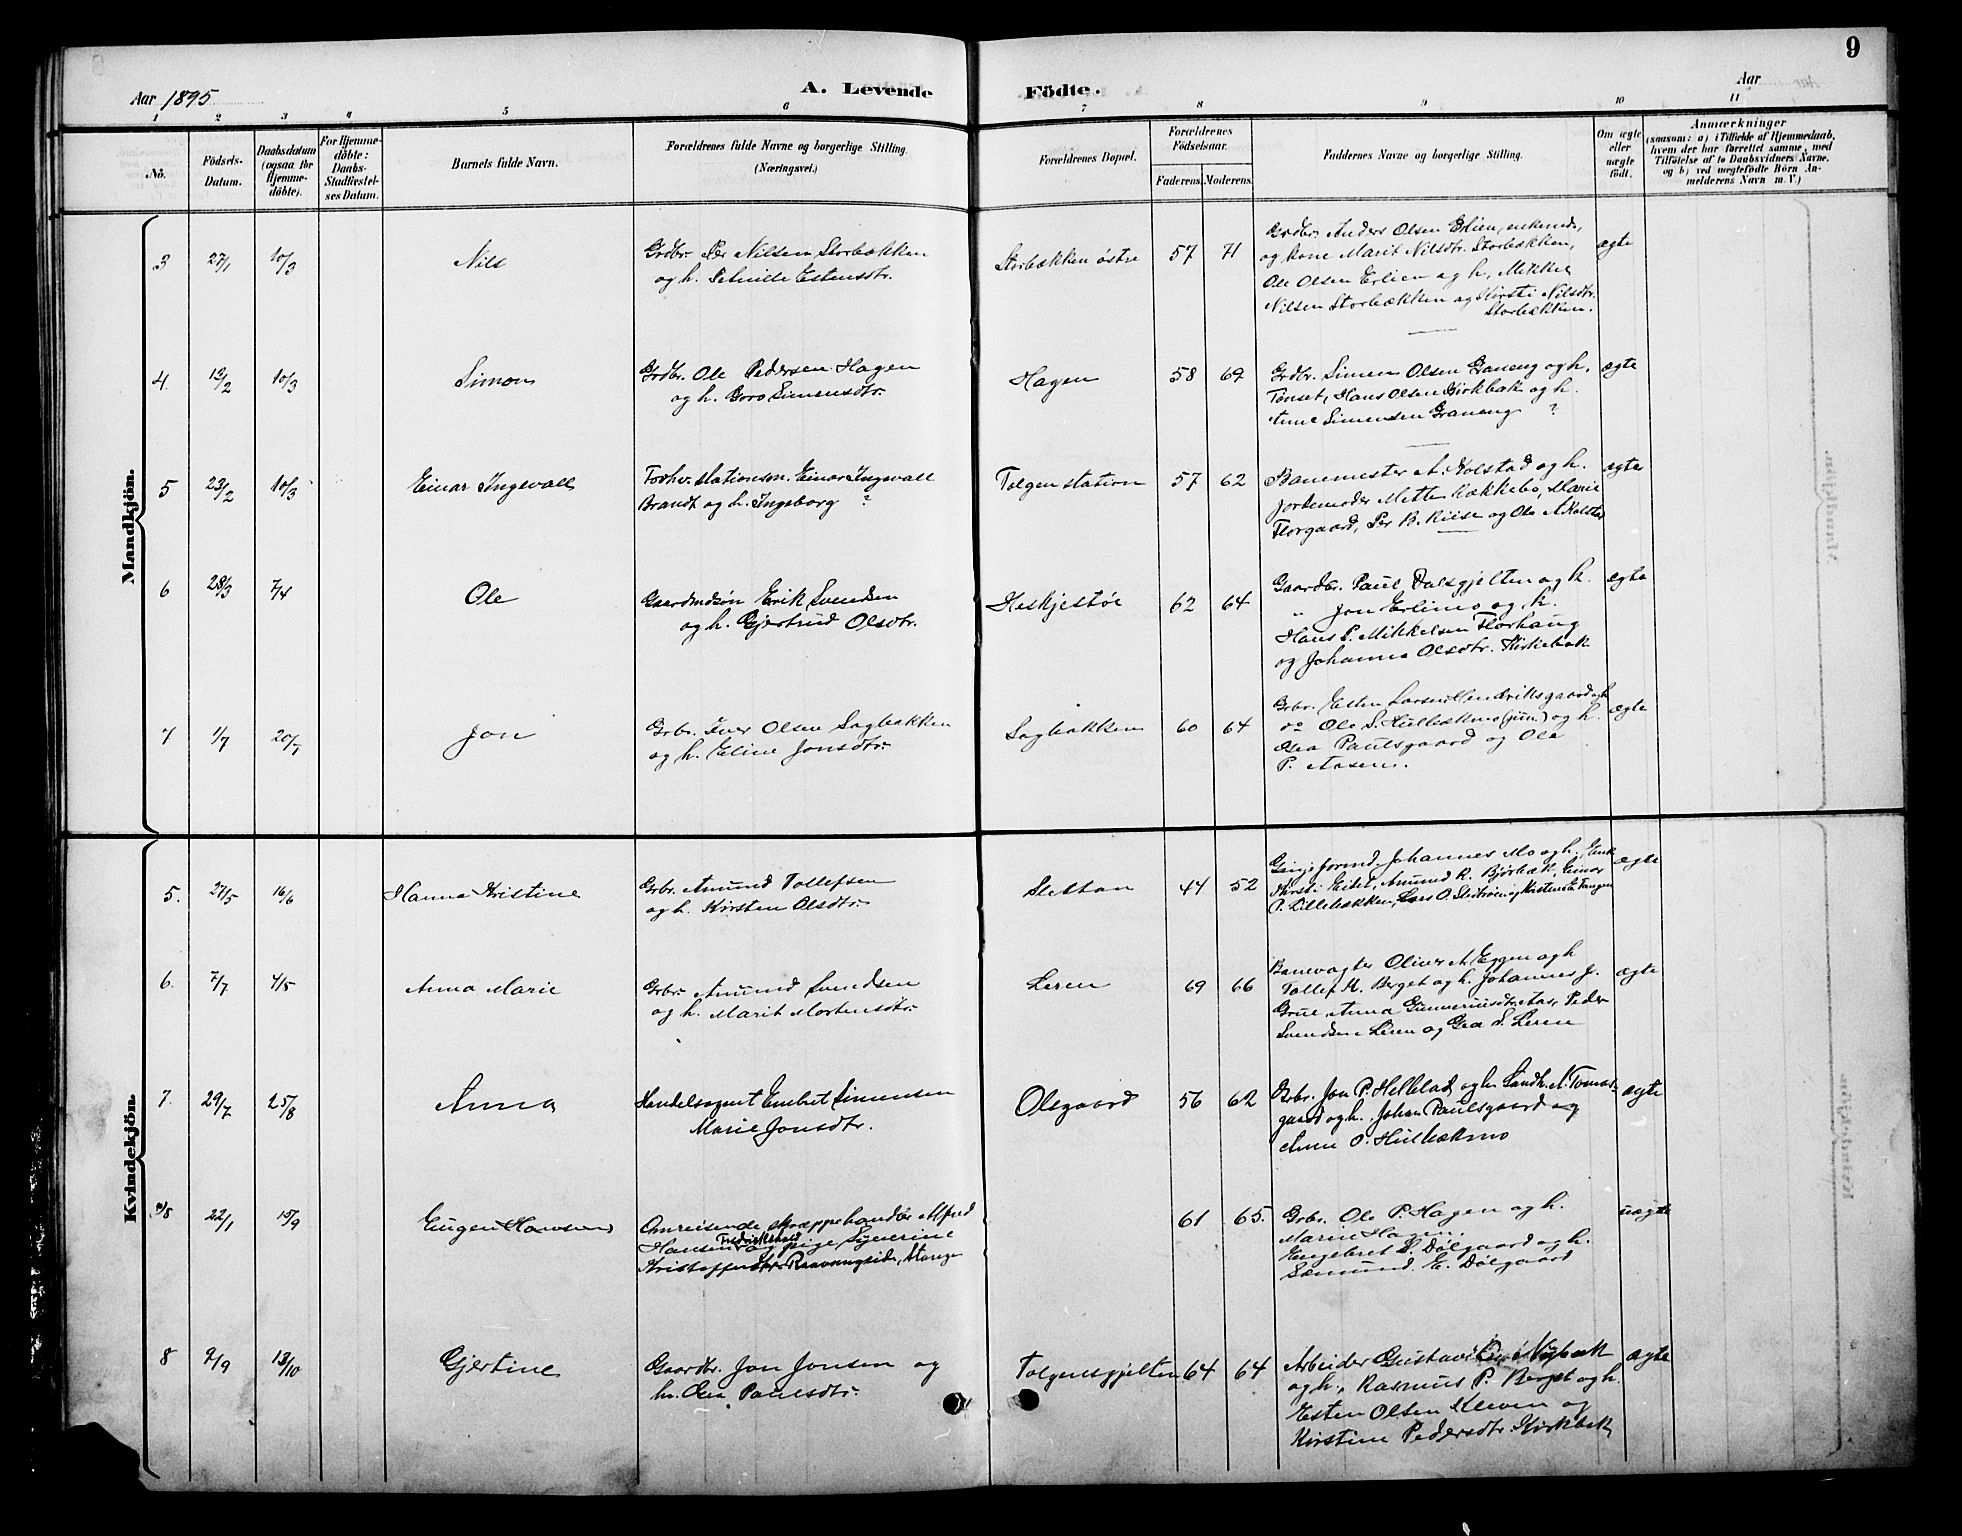 9
Aar 1895
A. Levende
Födte.
Aar
1 2 3 4 5 6 7 8 9 10 11
No.
Födsels-
Datum.
Daabsdatum
(ogsaa for
Hjemme-
döbte).
For Hjemme-
döbte:
Daabs-
Stadfestel-
ses Datum.
Barnets fulde Navn.
Forældrenes fulde Navne og borgerlige Stilling.
(Næringsvei.)
Forældrenes Bopæl.
Forældrenes
Födselsaar.
Faderens. Moderens.
Faddernes Navne og borgerlige Stilling.
Om ægte
eller
uægte
födt.
Anmærkninger
(saasom: a) i Tilfælde af Hjemmedaab,
hvem der har forrettet samme, med
Tilföielse af to Daabsvidners Navne,
og b) ved uægtefödte Börn An-
melderens Navn m. V.)
Mandkjön.
3 27/1 10/3 Nils
Grdbr. Per Nilsen Storbækken
og h. Pernille Estensdtr.
Storbækken östre 57 71
Grdbr. Anders Olsen Erlien, enkemd,
og kone Marit Nilsdtr. Storbækken,
Ole Olsen Erlien og h, Mikkel
Nilsen Storbækken og Kirsti Nilsdtr.
Storbækken.
ægte
4. 13/2 10/3 Simon
Grdbr. Ole Pedersen Hagen
og h. Goro Simensdtr.
Hagen 58 69
Grdbr. Simen Olsen Graneng og h,
Tönset, Hans Olsen Kirkbak og h.
Anne Simensen Graneng ?
ægte
5 23/2 10/3 Einar Ingevall
Forhv. stationsm. Einar Ingevall
Brandt og h. Ingeborg ?
Tolgen station 57 62
Banemester A. Kolstad og h.
Jordemoder Mette Kækkebo, Marie
Florgaard, Per B. Riise og Ole A Kolstad
ægte
6 28/3 7/4 Ole
Gaardmdsön Erik Svendsen
og h. Gjertrud Olsdtr.
Heskjestöe 62 64
Gaardbr. Paul Dalsgjelten og h.
" Jon Erlimo og h.
Hans P. Mikkelsen Florhaug
og Johanna Olsdtr. Kirkebak
ægte
7 1/7 20/7 Jon
Grbr. Iver Olsen Sagbakken
og h. Eline Jonsdtr.
Sagbakken 60 64
Grbr. Esten Larsen Hendriksgaard og h
do Ole S. Hulbækmo (jun.) og h.
Gea Paulsgaard og Ole
P. Aasen.
ægte
Kvindekjön.
5. 27/5 16/6 Hanna Kristine
Grbr. Amund Tollefsen
og h. Kirsten Olsdtr.
Sletten 44 52
Johannes Mo og h. Enk
Kirsti Eidet, Amund R. Björbæk, Einar
P. Lillebækken, Lars O. Sletröen og Kristensta Tangen
ægte
6. 7/7 4/5 Anna Marie
Grbr. Amund Svendsen
og h. Marit Mortensdtr.
Leren 69 66
Banevogter Oliver A. Eggen og h
Tollef K. Berget og h. Johannes J.
Grue, Anna Gunneriusdtr. Aas, Peder
Svendsen Leren og Gea S. Leren
ægte
7. 29/7 25/8 Anna
Handelsagent Embret Simensen
Marie Jonsdtr.
Olsgaard 56 62
Grbr. Jon P. Hellelad og h. Landh. N. Tomas-
gaard og h. Johan Paulsgaard og
Anne O. Hulbækmo
ægte
8/8 22/1 15/9 Eugen Hansen
Omreisende skræppehandler Alfred
Hansen Fredrikshald og pige Syverine
Kristoffersdtr. Stange
61 65.
Grbr. Ole P. Hagen og h.
Marie Hagen.
Engebret S. Dölgaard og h.
Sæmund E. Dölgaard
uægte
8 2/9 13/10 Gjertine
Gaardbr. Jon Jonsen og
h. Gea Paulsdtr.
Tolgensgjelten 64 64
Arbeider Gustav Nybak
og h., Rasmus P. Berget og h
Esten Olsen Kleven og
Kirstine Pedersdtr. Kirkbak
ægte